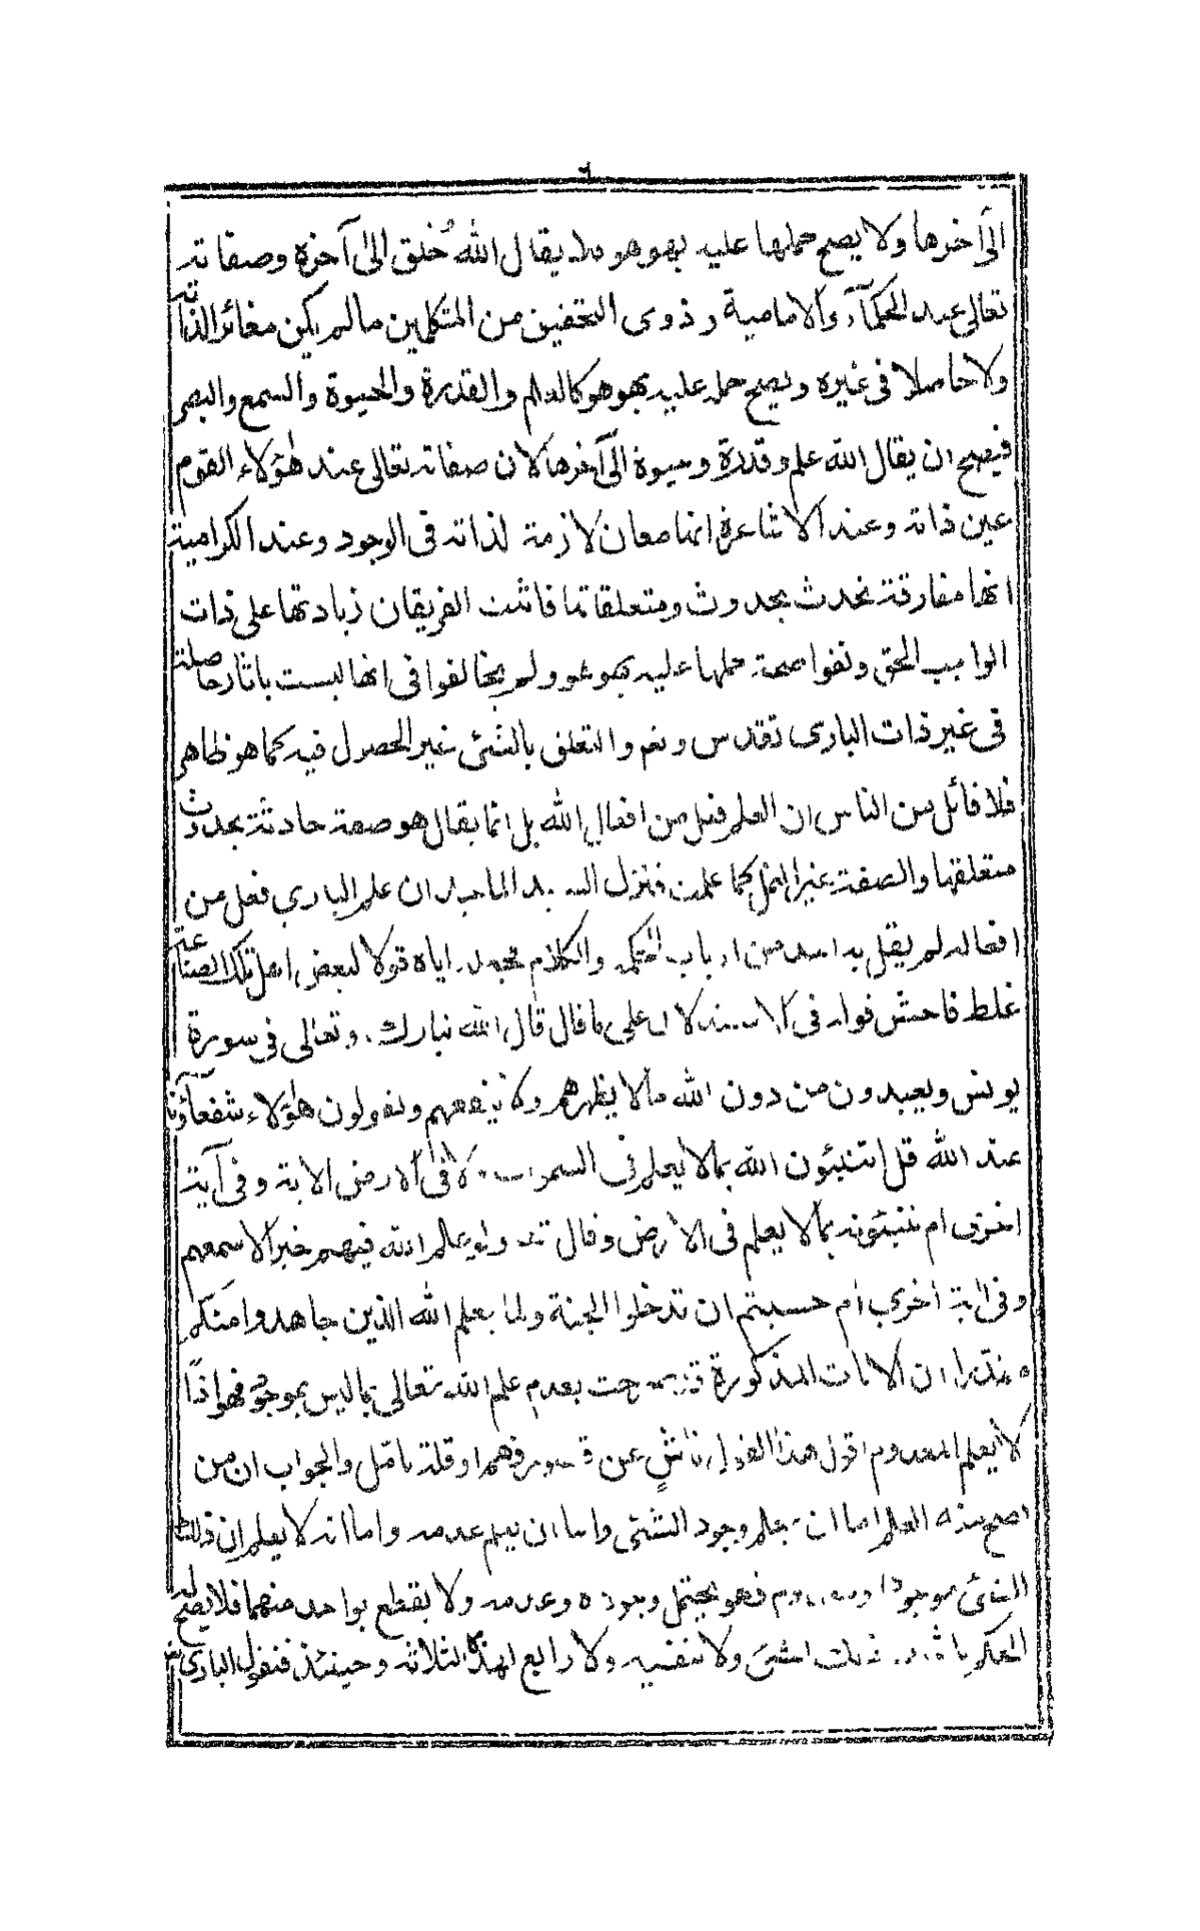 ٦
الى آخرها ولا يصح حملها عليه بهو هو فلا يقال الله خلق الى آخره وصفاته
تعالى عند الحكمآء والامامية وذوى التحقيق من المتكلمين ما لم يكن مغائر الذاته
ولا حاصلا فى غيره ويصح حمله عليه بهو هو كالعلم والقدرة والحيوة والسمع والبصر
فيصح ان يقال الله علم وقدرة وحيوة الى آخرها لان صفاته تعالى عند هؤلاء القوم
عين ذاته وعند الاشاعرة انها معان لازمة لذاته فى الوجود وعند الكرامية
انها مفارقة تحدث بحدوث ومتعلقاتها فاثبت الفريقان زيادتها على ذات
الواجب الحق ونفوا صحة حملها عليه بهو هو ولم يخالفوا فى انها ليست باثار حاصلة
فى غير ذات البارى تقدس ونعم والتعلق بالشئ غير الحصول فيه كما هو ظاهر
فلا قائل من الناس ان العلم فعل من افعال الله بل انما يقال هو صفة حادثة بحدوث
متعلقها والصفة غير الفعل كما علمت فنزل السيد الماجد ان علم البارى فعل من
افعاله لم يقل به احد من ارباب الحكمة والكلام فجعله اياه قولا لبعض اهل تلك الصناعة
غلط فاحش قوله فى الاستدلال على ما قال قال الله تبارك وتعالى فى سورة
يونس ويعبدون من دون الله مالا يظرهم ولا ينفعهم ويقولون هؤلاء شفعآؤنا
عند الله قل اتنبئون الله بما لا يعلم فى السموات ولا فى الارض الاية وفى آية
اخرى ام تنبئونه بما لا يعلم فى الارض وقال تعـ ولو علم الله فيهم خيرا لاسمعهم
وفى اية اخرى ام حسبتم ان تدخلوا الجنة ولما يعلم الله الذين جاهدوا منكم
ان الايات المذكورة قد صرحت بعدم علم الله تعالى بما ليس بموجود فهو اذًا
لا يعلم المعدوم اقول هذا القول ناشٍ عن قصور فهم او قلة تامل والجواب ان من
اصح هذه العلم اما ان يعلم وجود الشئ واما ان يعلم عدمه واما انه لا يعلم ان ذلك
الشئ موجود او معدوم فهو يحتمل وجوده وعدمه ولا يقطع بواحد منهما فلا يصح له
الحكم باثبات ذلك الشئ ولا بنفيه ولا رابع لهذه الثلاثة وحينئذ فنقول البارى